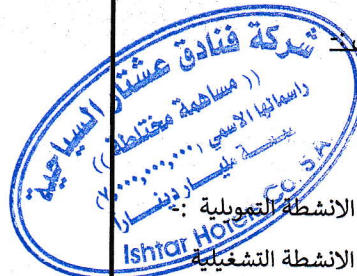 شركة فنادق عشتار السياحية
(( مساهمة مختلطة ))
راسمالها الاسمي (٧,٠٠٠,٠٠٠,٠٠٠)
مليار دينار
Ishtar Hotels Co. S.A.
الانشطة التمويلية :-
الانشطة التشغيلية